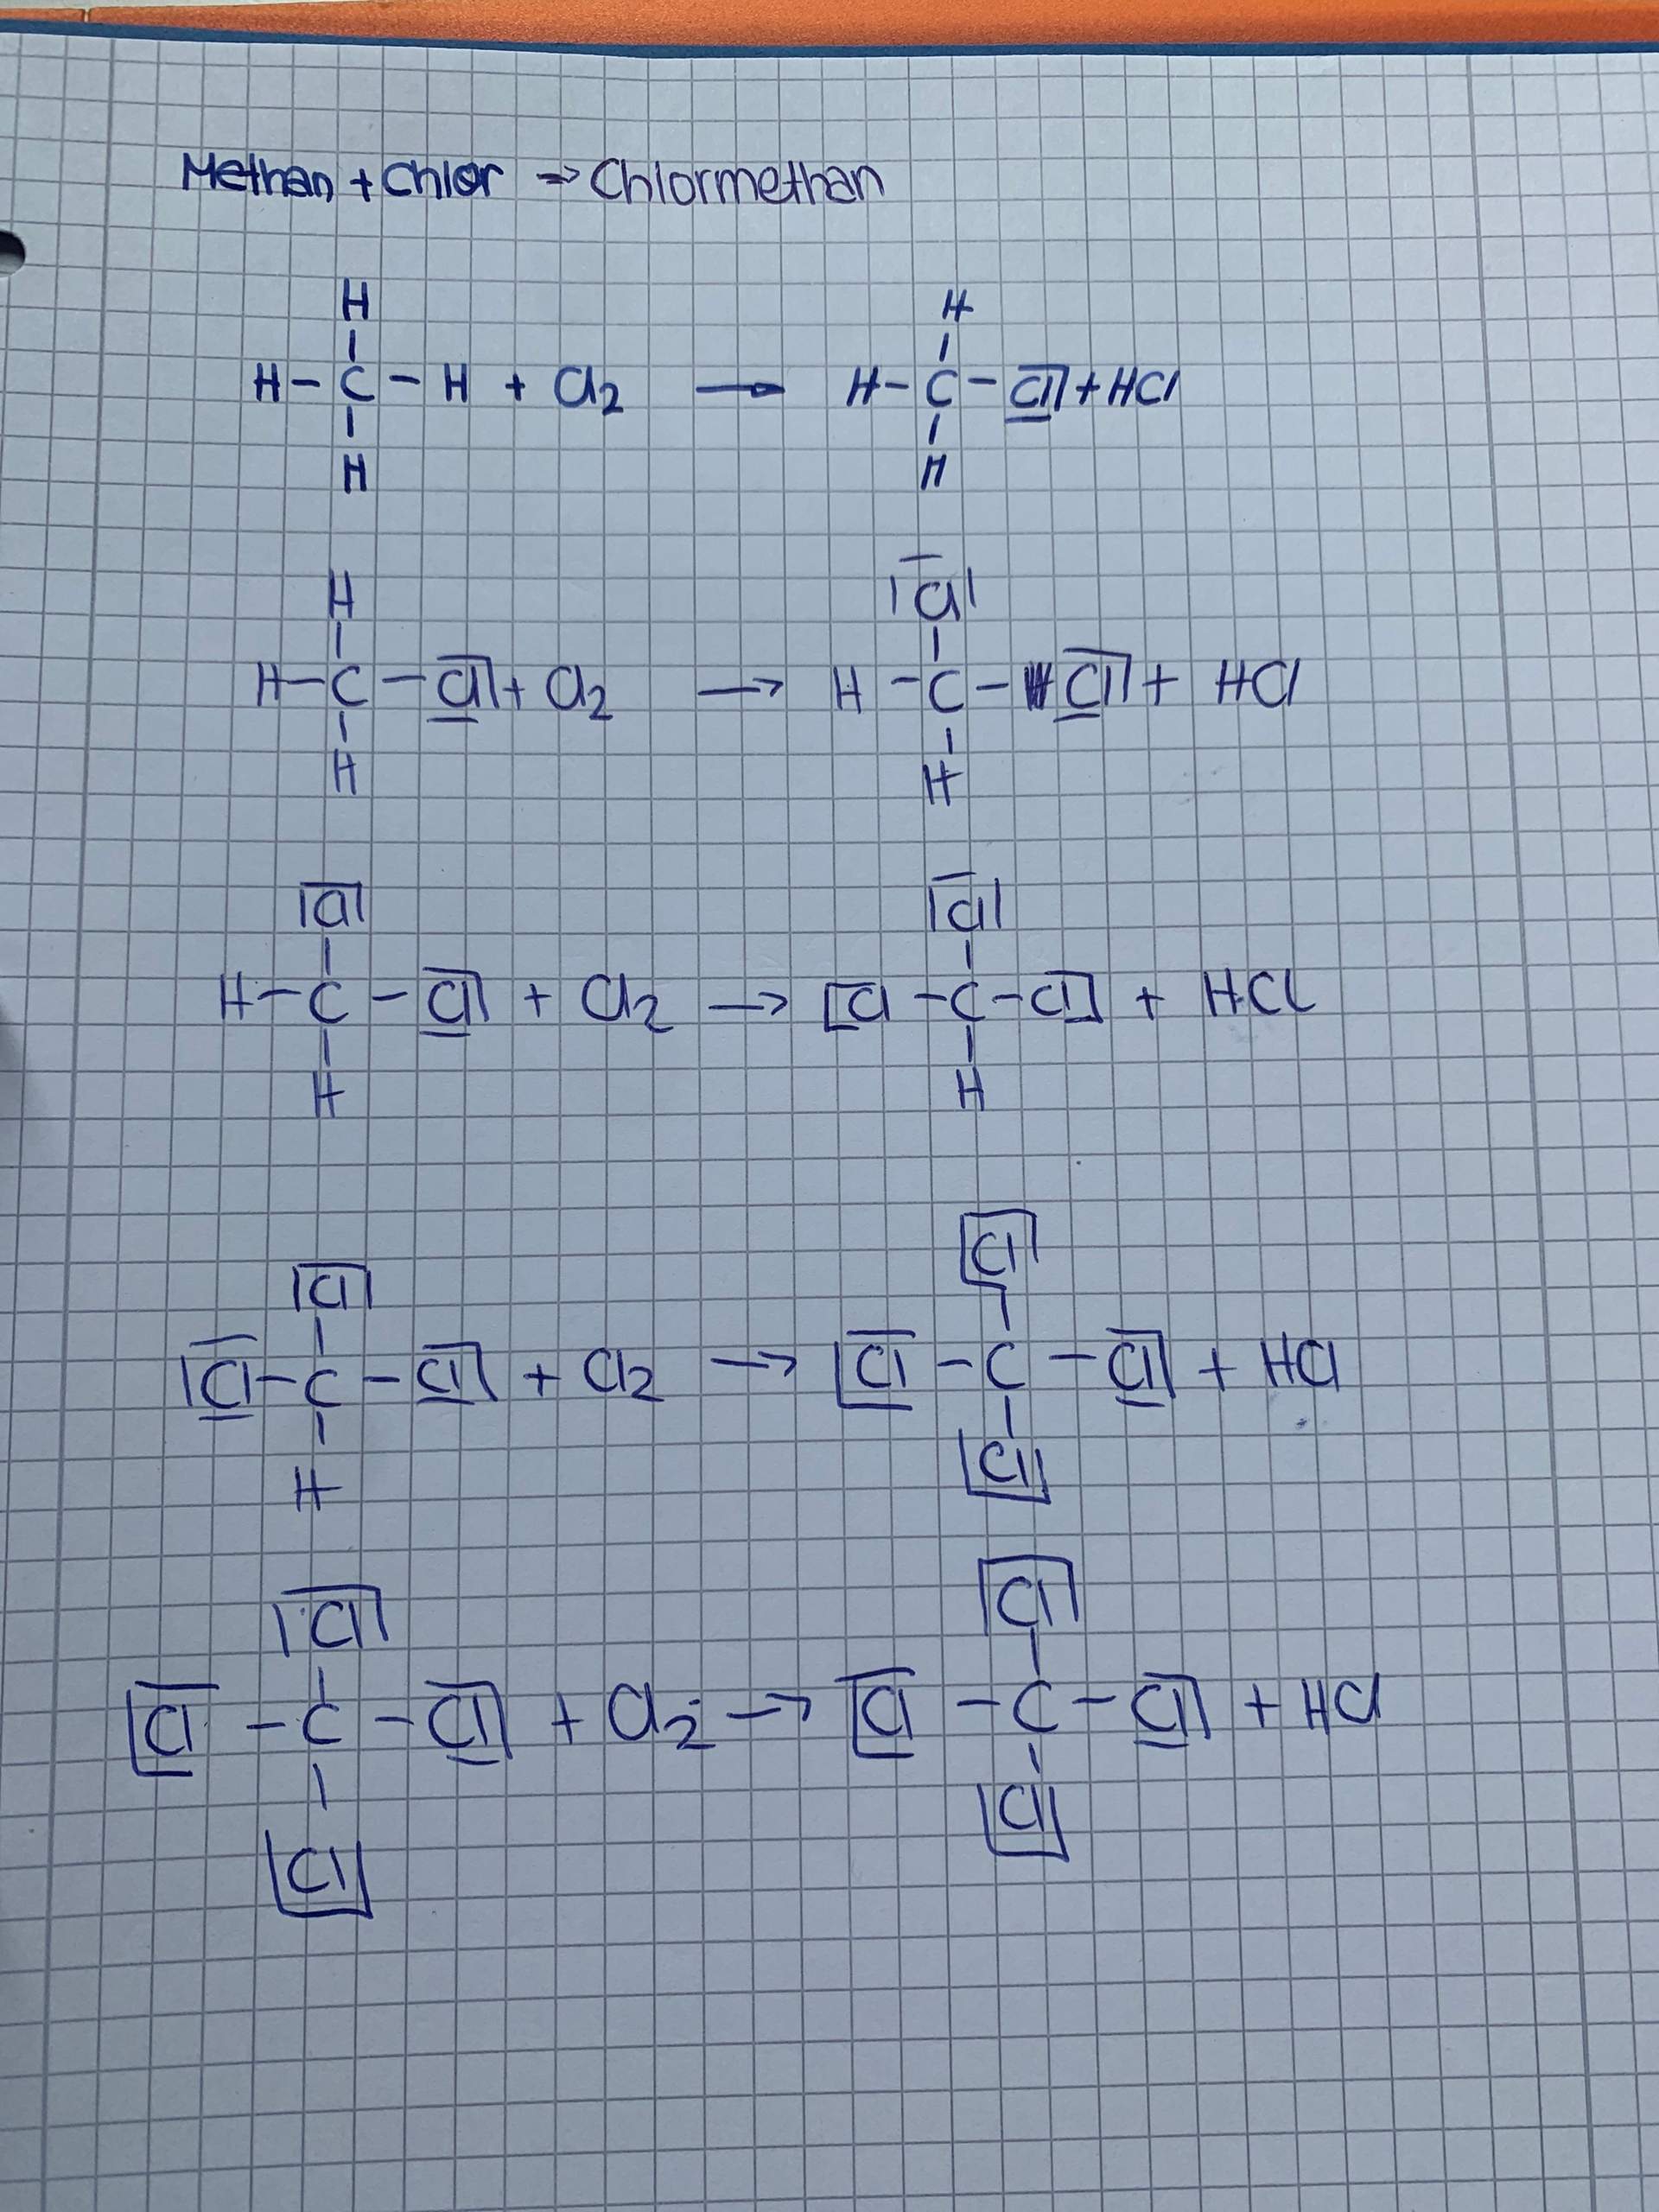 Methan + Chlor → Chlormethan
H
H – C – H + Cl2 → H – C – Cl + HCl
H
H
H
H
Cl
H – C – Cl + Cl2 → H – C – Cl + HCl
H
H
Cl
Cl
H – C – Cl + Cl2 → Cl – C – Cl + HCl
H
H
Cl
Cl
Cl – C – Cl + Cl2 → Cl – C – Cl + HCl
H
Cl
Cl
Cl
Cl – C – Cl + Cl2 → Cl – C – Cl + HCl
Cl
Cl